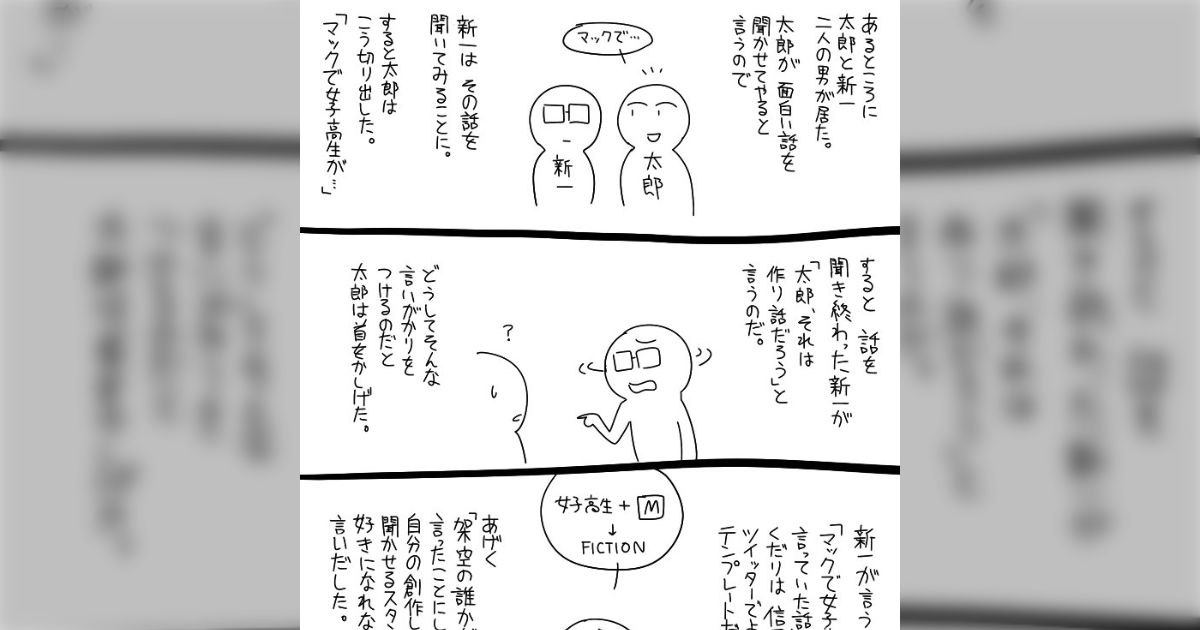 あるところに
太郎と新一
二人の男が居た。
太郎が 面白い話を
聞かせてやると
言うので
マックで…
太郎
新一
新一は その話を
聞いてみることに。
すると太郎は
こう切り出した。
「マックで女子高生が…」
すると 話を
聞き終わった新一が
「太郎、それは
作り話だろう」と
言うのだ。
?
どうしてそんな
言いがかりを
つけるのだと
太郎は首をかしげた。
新一が言う
「マックで女子
言っていた話
くだりは 信
ツイッターでよ
テンプレートだ
女子高生+M
↓
FICTION
あげく
「架空の誰かが
言ったことにし
自分の創作し
聞かせるスタン
好きになれな
言いだした。